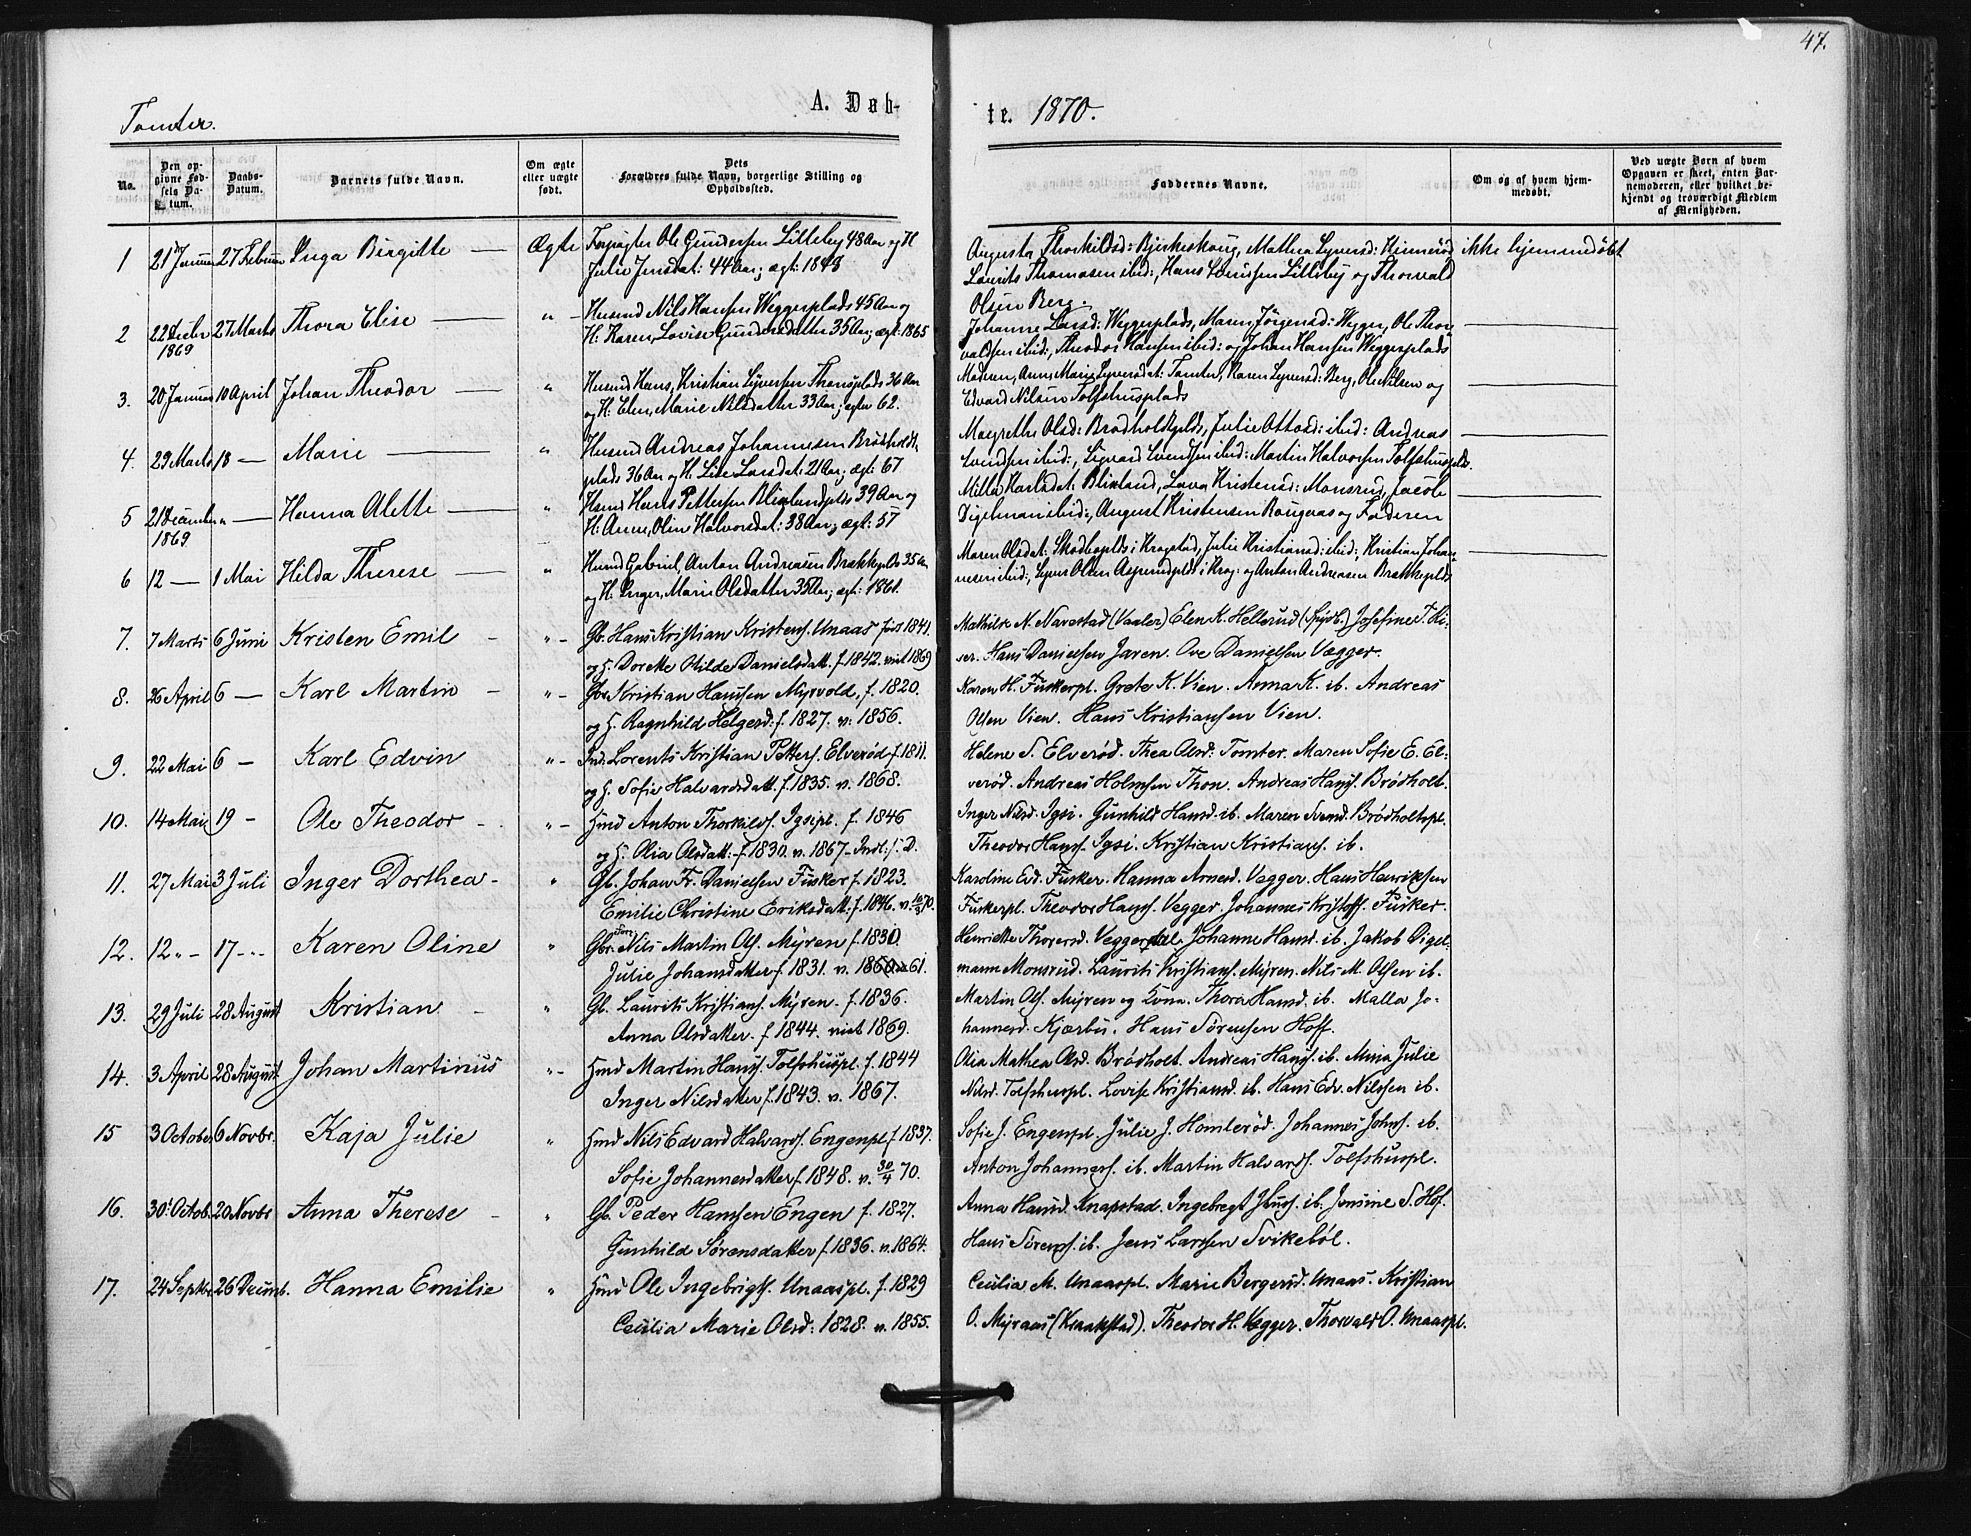 47.
Tomter.
A. Døb-
te. 1870.
No.
Den op-
givne Fød-
sels Da-
tum.
Daabs-
Datum.
Barnets fulde Navn.
Om ægte
eller uægte
født.
Dets
Forældres fulde Navn, borgerlige Stilling og
Opholdssted.
Faddernes Navne.
Om og af hvem hjem-
medøbt.
Ved uægte Børn af hvem
Opgaven er skeet, enten Bar-
nemoderen, eller hvilket be-
kjendt og troværdigt Medlem
af Menigheden.
1 21 Januar 27 Februar Inga Birgitte Ægte Forpagter Ole Gundersen Lilleby 48 Aar og H
Julie Jensdat: 44 Aar; ægt: 1848
Augusta Thorkildsd: Bjerkeskaug, Mathea Syversd: Himerød
Laurits Thomasen ibid:, Hans Lilleby og Thorvald
Olsen Berg.
ikke hjemmedøbt
2 22 Decbr 27 Marts Thora Elise " Husmd Nils Hansen Weggerplads 45 Aar og
1869 H: Karen Lovise Gundersdatter 35 Aar; ægt: 1865
Johanne Larsd: Weggerplads, Maren Jørgensd: Wegger, Ole Thor-
valdsen ibid:, Theodor Hansen ibid: og Johan Hansen Weggerplads
3. 20 Januar 10 April Johan Theodor " Husmd Hans Kristian Syversen Thonsplads 36 Aar
og H: Elen Marie Nilsdatter 33 Aar; ægtv 62.
Moderen, Anne Marie Syversdat: Tomter, Karen Syversd: Berg, Ole Nilsen og
Edvard Nilsen Tolfshusplads
4. 29 Marts 18 — Marie " Husmd Andreas Johannesen Brødholdt-
plads 36 Aar og H. Lise Larsdat: 21 Aar; ægt: 67
Magrethe Olsd: Brødholdtplds, Julie Ottosd: ibid: Andreas
Svendsen ibid:, Sigvard Svendsen ibid: Martin Halvorsen Tolfshusplds.
5 21 December " — Hanna Alette " Husmd Hans Pettersen Blixlandplds 39 Aar og
1869 H: Anne Oline Halvorsdat: 38 Aar; ægt: 57
Milla Karlsdat: Blixland, Lava Kristensd: Monsrud, Jacob
Digelman ibid:, August Kristensen Rougaas og Faderen
6 12 — 1 Mai Hilda Therese " Husmd Gabriel Anton Andreasen Brækkeplds 35 Aar
og H: Inger Marie Olsdatter 35 Aar; ægt: 1861.
Maren Olsdat: Skodboplds i Kragstad, Julie Kristiansd: ibid:, Kristian Johan-
nesen ibid:, Syver Olsen i Krag: og Anton Andreasen Brækkeplds
7. 7 Marts 6 Juni Kristen Emil "- Gb. Hans Kristian Kristens. Unaas født 1841.
og H. Dorthe Otilde Danielsdatt. f. 1842. viet 1869
Mathilde N. Navestad (Vaaler) Elen K. Hellerud (Spjdb.) Josefine T. Ki-
ser. Hans Danielsen Jaren. Ove Danielsen Vægger.
8. 26 April 6 — Karl Martin "- Gbr. Kristian Hansen Myrvold, f. 1820.
og H. Ragnhild Helgesd. f. 1827. v. 1856.
Karen H. Fuskerpl. Grete K. Vien. Anna K. ib. Andreas
Olsen Vien. Hans Kristiansen Vien.
9. 22 Mai 6 — Karl Edvin "- Ind. Lorents Kristian Petters. Elverød f. 1811.
og H. Sofie Halvardsdatt. f. 1835. v. 1868.
Helene S. Elverød. Thea Olsd. Tomter. Maren Sofie E. El-
verød. Andreas Holmsen Thon. Andreas Hans. Brødholt.
10. 14 Mai 19 — Ole Theodor "- Hmd Anton Thorkilds. Igsipl. f. 1846
og H. Olia Olsdatt: f. 1830. v. 1867 -
Inger Nilsd. Igsi. Gunhild Hansd. ib. Maren Svensd. Brødholtspl.
Theodor Hans. Igsi. Kristian Kristians. ib.
11. 27 Mai 3 Juli Inger Dorthea " Gb. Johan Fr. Danielsen Fusker f. 1823.
Emilie Christine Eriksdatt. f. 1846. v. 70.
Karoline Evd. Fusker. Hanna Arnesd. Vegger. Hans Henriksen
Fuskerpl. Theodor Hans. Vegger. Johannes Kristoff. Fusker.
12. 12 "- 17 "- Karen Oline " Gbr. Nils Martin Ols. Myren f. 1830.
Julie Johansdatter f. 1831. v. 61.
Henriette Thorersd. Vegger, Johanne Hansd. ib. Jakob Digel-
mann Monsrud. Laurits Kristians. Myren. Nils M. Olsen ib.
13. 29 Juli 28 August Kristian " Gb. Laurits Kristians. Myren. f. 1836.
Anna Olsdatter. f. 1844. viet 1869.
Martin Ols. Myren og Kona. Thora Hansd. ib. Malla Jo-
hannesd. Kjærbu. Hans Sørensen Hoff.
14. 3 April 28 August Johan Martinus "- Hmd Martin Hans. Tolfshuspl. f. 1844
Inger Nilsdatter f. 1843. v. 1867.
Olia Mathea Olsd. Brødholt. Andreas Hans. ib. Mina Julie
Nilsd. Tolfshuspl. Lovise Kristiansd. ib. Hans Edv. Nilssen ib.
15 3 October 6 Novbr. Kaja Julie " Hmd Nils Edvard Halvards. Engenpl. f. 1837.
Sofie Johannesdatter f. 1848. v. 30/4 70.
Sofie J. Engenpl. Julie J. Homlerød. Johannes Johns. ib.
Anton Johanness. ib. Martin Halvards. Tolfshuspl.
16. 30 Octob. 20 Novbr Anna Therese " Gb. Peder Hansen Engen f. 1827.
Gunhild Sørensdatter f. 1836. v. 1864.
Anna Hansd. Knapstad. Ingebregt ib. Jensine S. Hof.
Hans Sørens. ib. Jens Larssen Svikebøl.
17. 24 Septbr. 26 Decemb. Hanna Emilie " Hmd Ole Ingebrigts. Unaaspl. f. 1829
Cecilia Marie Olsd: 1828. v. 1855.
Cecilia M. Unaaspl. Marie Bergersd. Unaas. Kristian
O. Myraas (Kraakstad). Theodor H. Vegger. Thorvald O. Unaaspl.